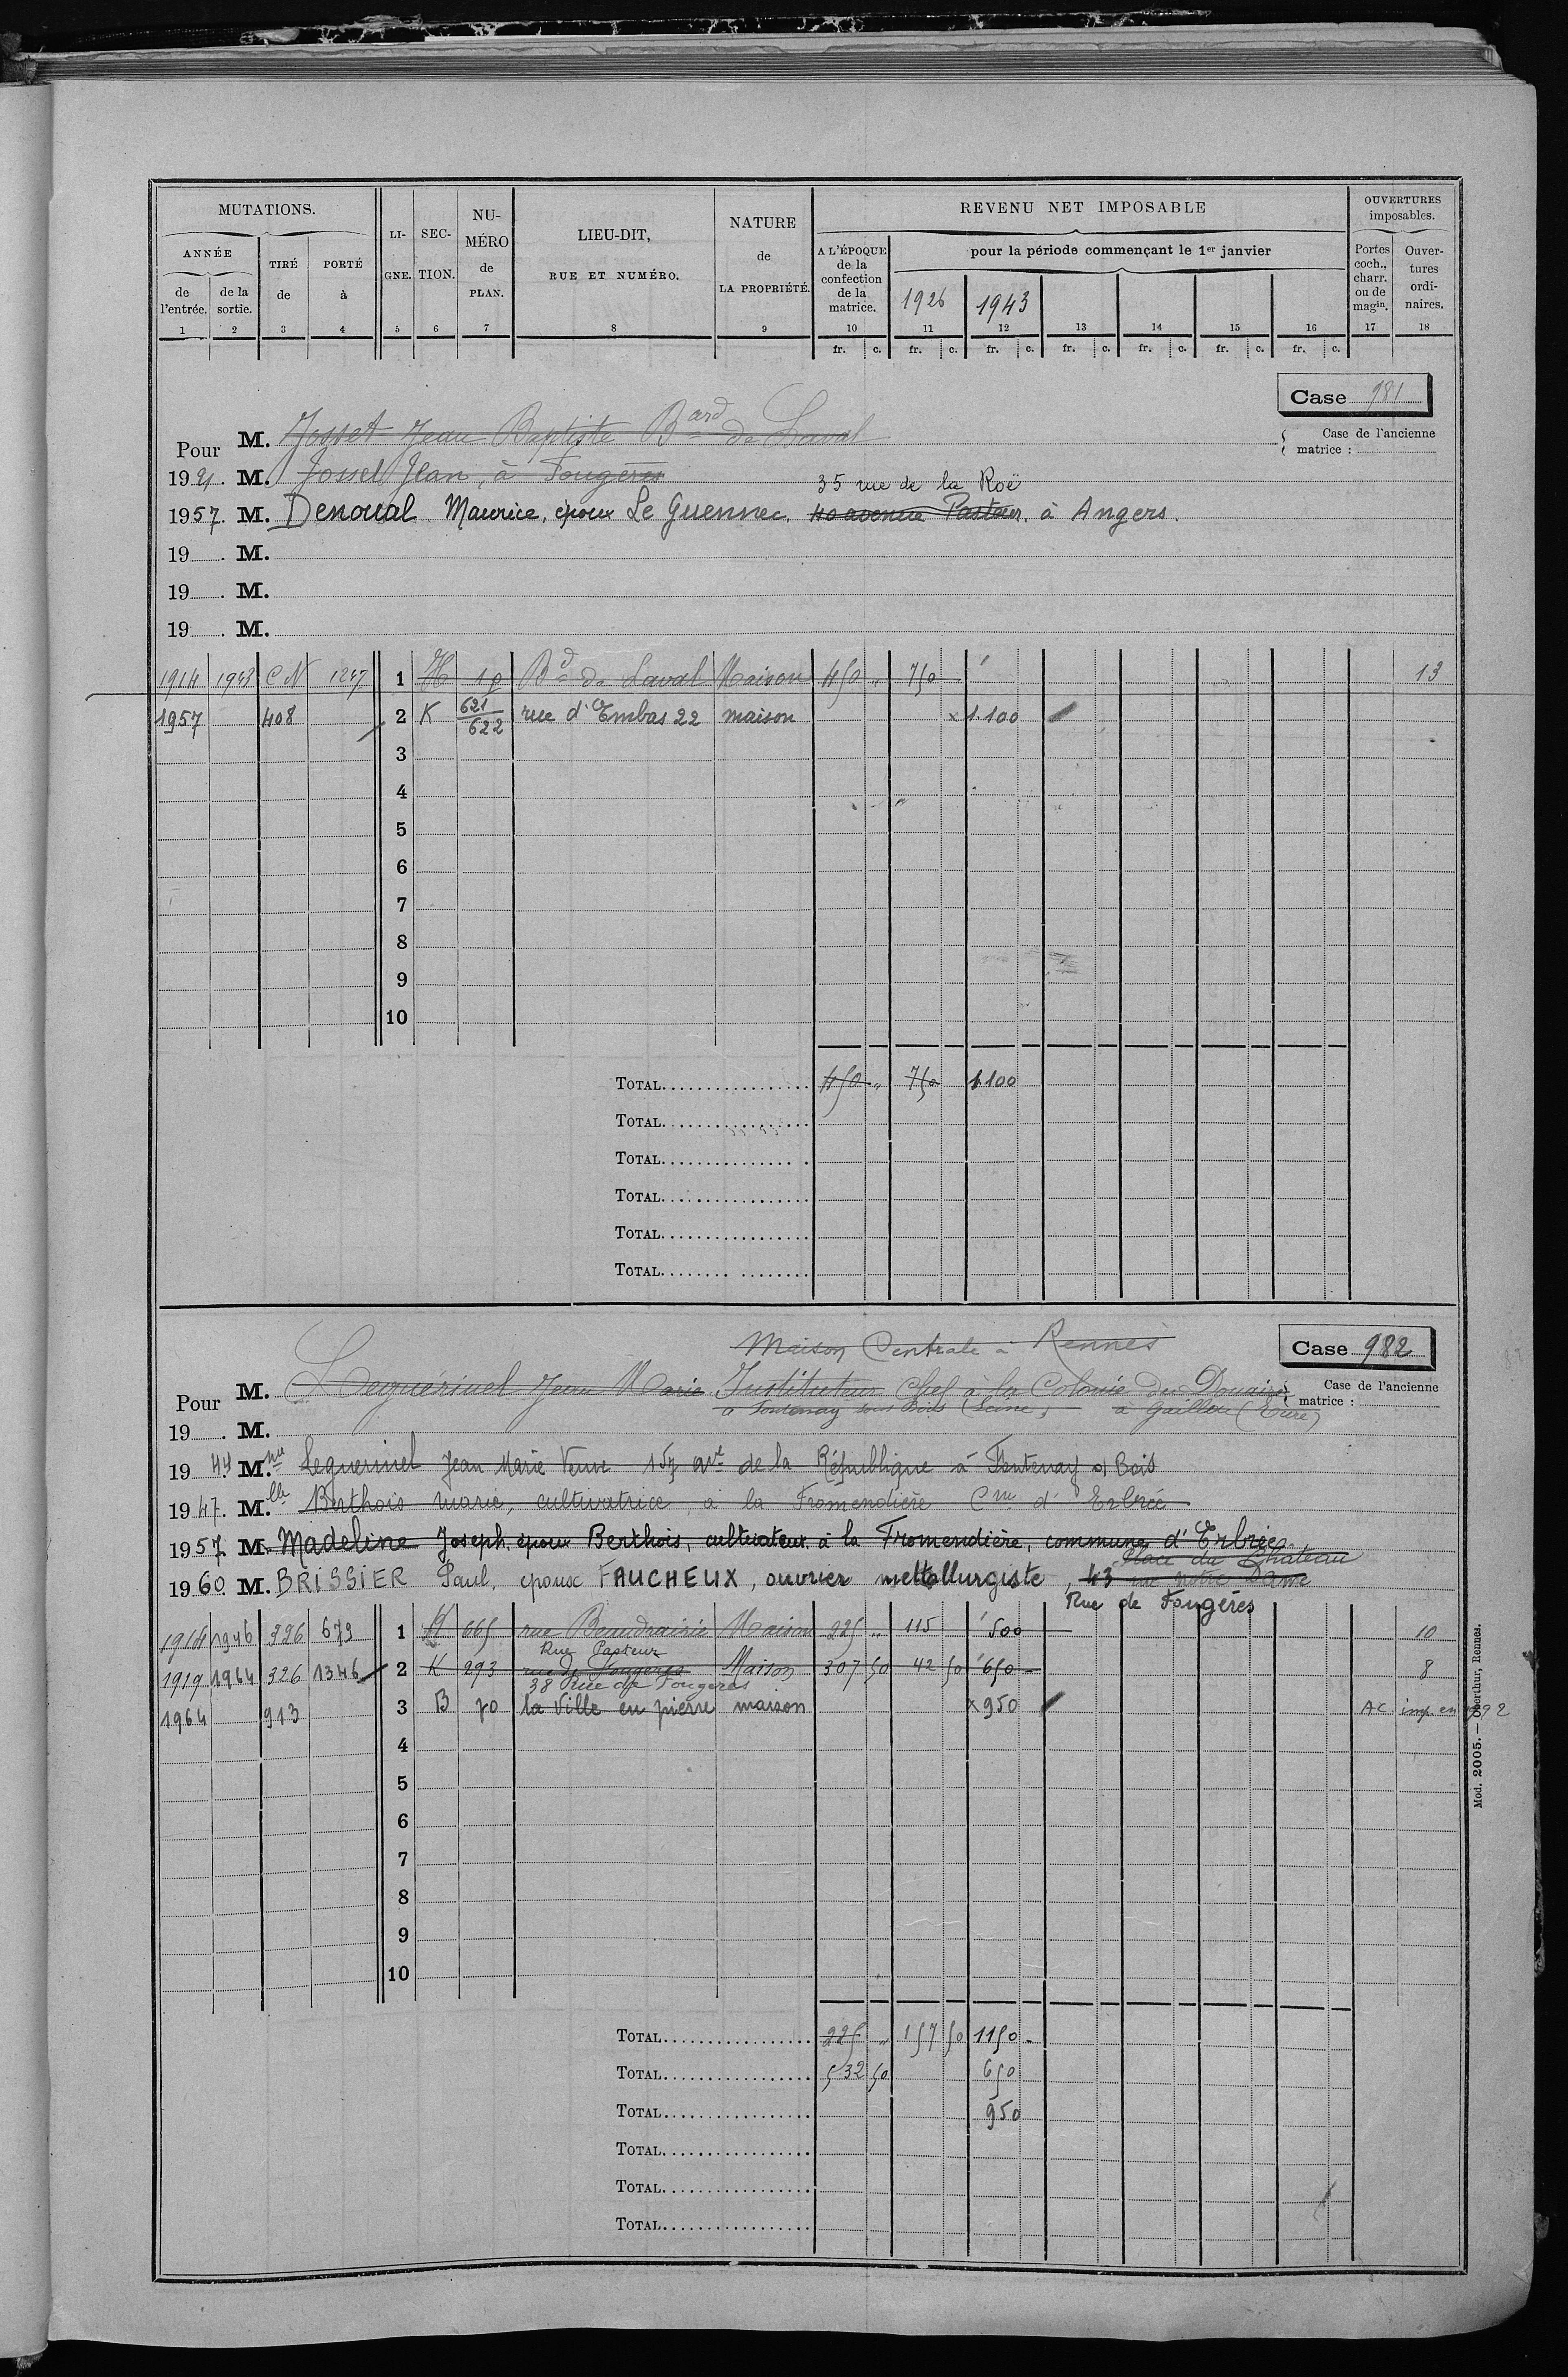 MUTATIONS. LI-GNE. SEC-TION. NU-MÉRO de PLAN. LIEU-DIT, RUE ET NUMÉRO. NATURE de LA PROPRIÉTÉ. REVENU NET IMPOSABLE OUVERTURES imposables.
ANNÉE TIRÉ de PORTÉ à A L'ÉPOQUE de la confection de la matrice. pour la période commençant le 1er janvier Portes coch., charr. ou de magin. Ouver-tures ordi-naires.
de l'entrée. de la sortie. 1926 1943
1 2 3 4 5 6 7 8 9 10 11 12 13 14 15 16 17 18
fr. c. fr. c. fr. c. fr. c. fr. c. fr. c. fr. c.
Case 981
Pour M. Josset Jean Baptiste Bard de Laval
Case de l'ancienne matrice :
1921. M. Josset Jean, à Fougères
35 rue de la Roë
1957. M. Denoual Maurice, époux Le Guennec. 40 avenue Pasteur. à Angers.
19 . M.
19 . M.
19 . M.
1914 1943 CN 1247 1 H 19 Bd de Laval Maison 450 " 750 13
1957 408 2 K 621/622 rue d'Embas 22 maison x 1.100
3
4
5
6
7
8
9
10
TOTAL 450 " 750 1100
TOTAL
TOTAL
TOTAL
TOTAL
TOTAL
Maison Centrale à Rennes
Case 982
Pour M. Leguérinel Jean Marie Instituteur Chef à la Colonie du Douaire
Case de l'ancienne matrice :
à Fontenay sous Bois (Seine) à Gaillon (Eure)
19 . M.
1944 M. Leguerinel Jean Marie Veuve 157 Ave de la République à Fontenay s/ Bois
1947. Mlle Berthois marie, cultivatrice, à la Fromendière Cne d'Erbrée
1957. M. Madeline Joseph, époux Berthois, cultivateur, à la Fromendière, commune d'Erbrée
Place du Château
1960. M. BRISSIER Paul, époux FAUCHEUX, ouvrier mettallurgiste, 43 rue Notre Dame
Rue de Fougères
1914 1946 326 673 1 H 665 rue Beaudrairie Maison 225 " 115 500 10
Rue Pasteur
1919 1964 326 1346 2 K 293 rue de Fougeres Maison 307 50 42 50 650 8
38 Rue de Fougères
1964 913 3 B 70 la Ville en pierre maison x 950 AC imp. en 1992
4
5
6
7
8
9
10
TOTAL 225 " 157 50 1150
TOTAL 532 50 650
TOTAL 950
TOTAL
TOTAL
TOTAL
Mod. 2005. — Oberthur, Rennes.